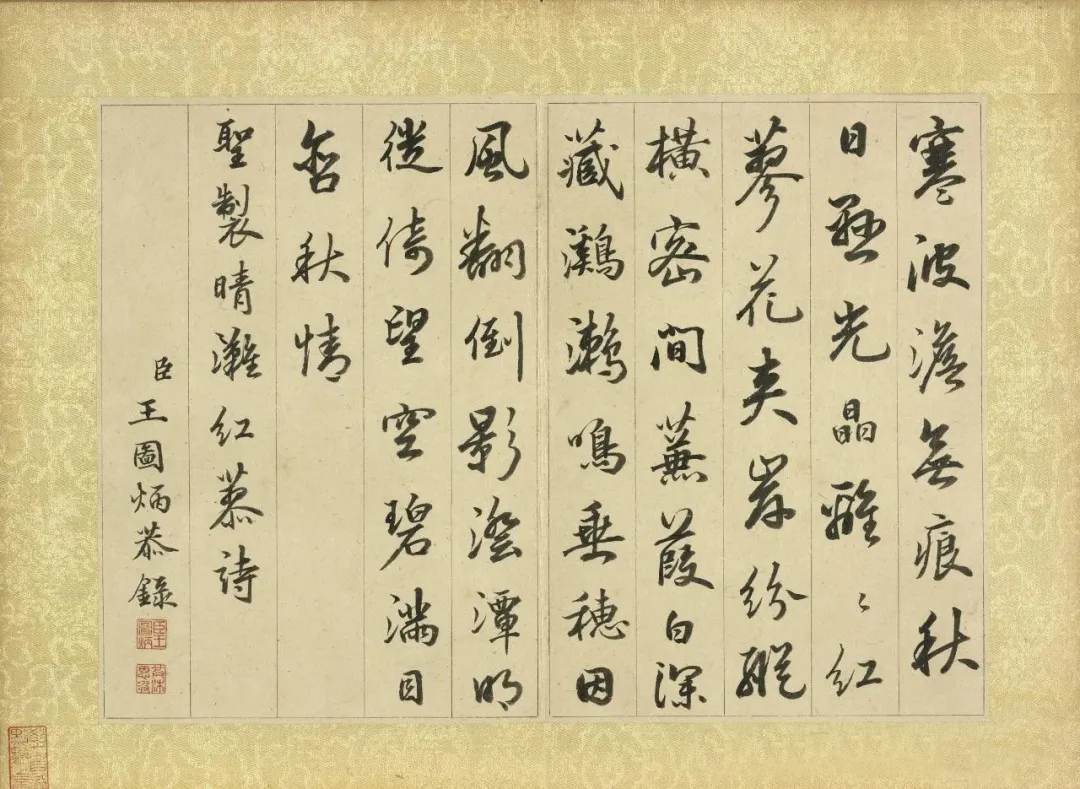 寒波澹無痕秋
日懸光晶離〻紅
蓼花夾岸紛縱
橫密間蕪葭白深
藏鸂鷘鳴垂穗因
風翻倒影澄潭明
徙倚望空碧滿目
含秋情
聖製晴灘紅蓼詩
臣王圖炳恭錄
臣王圖炳